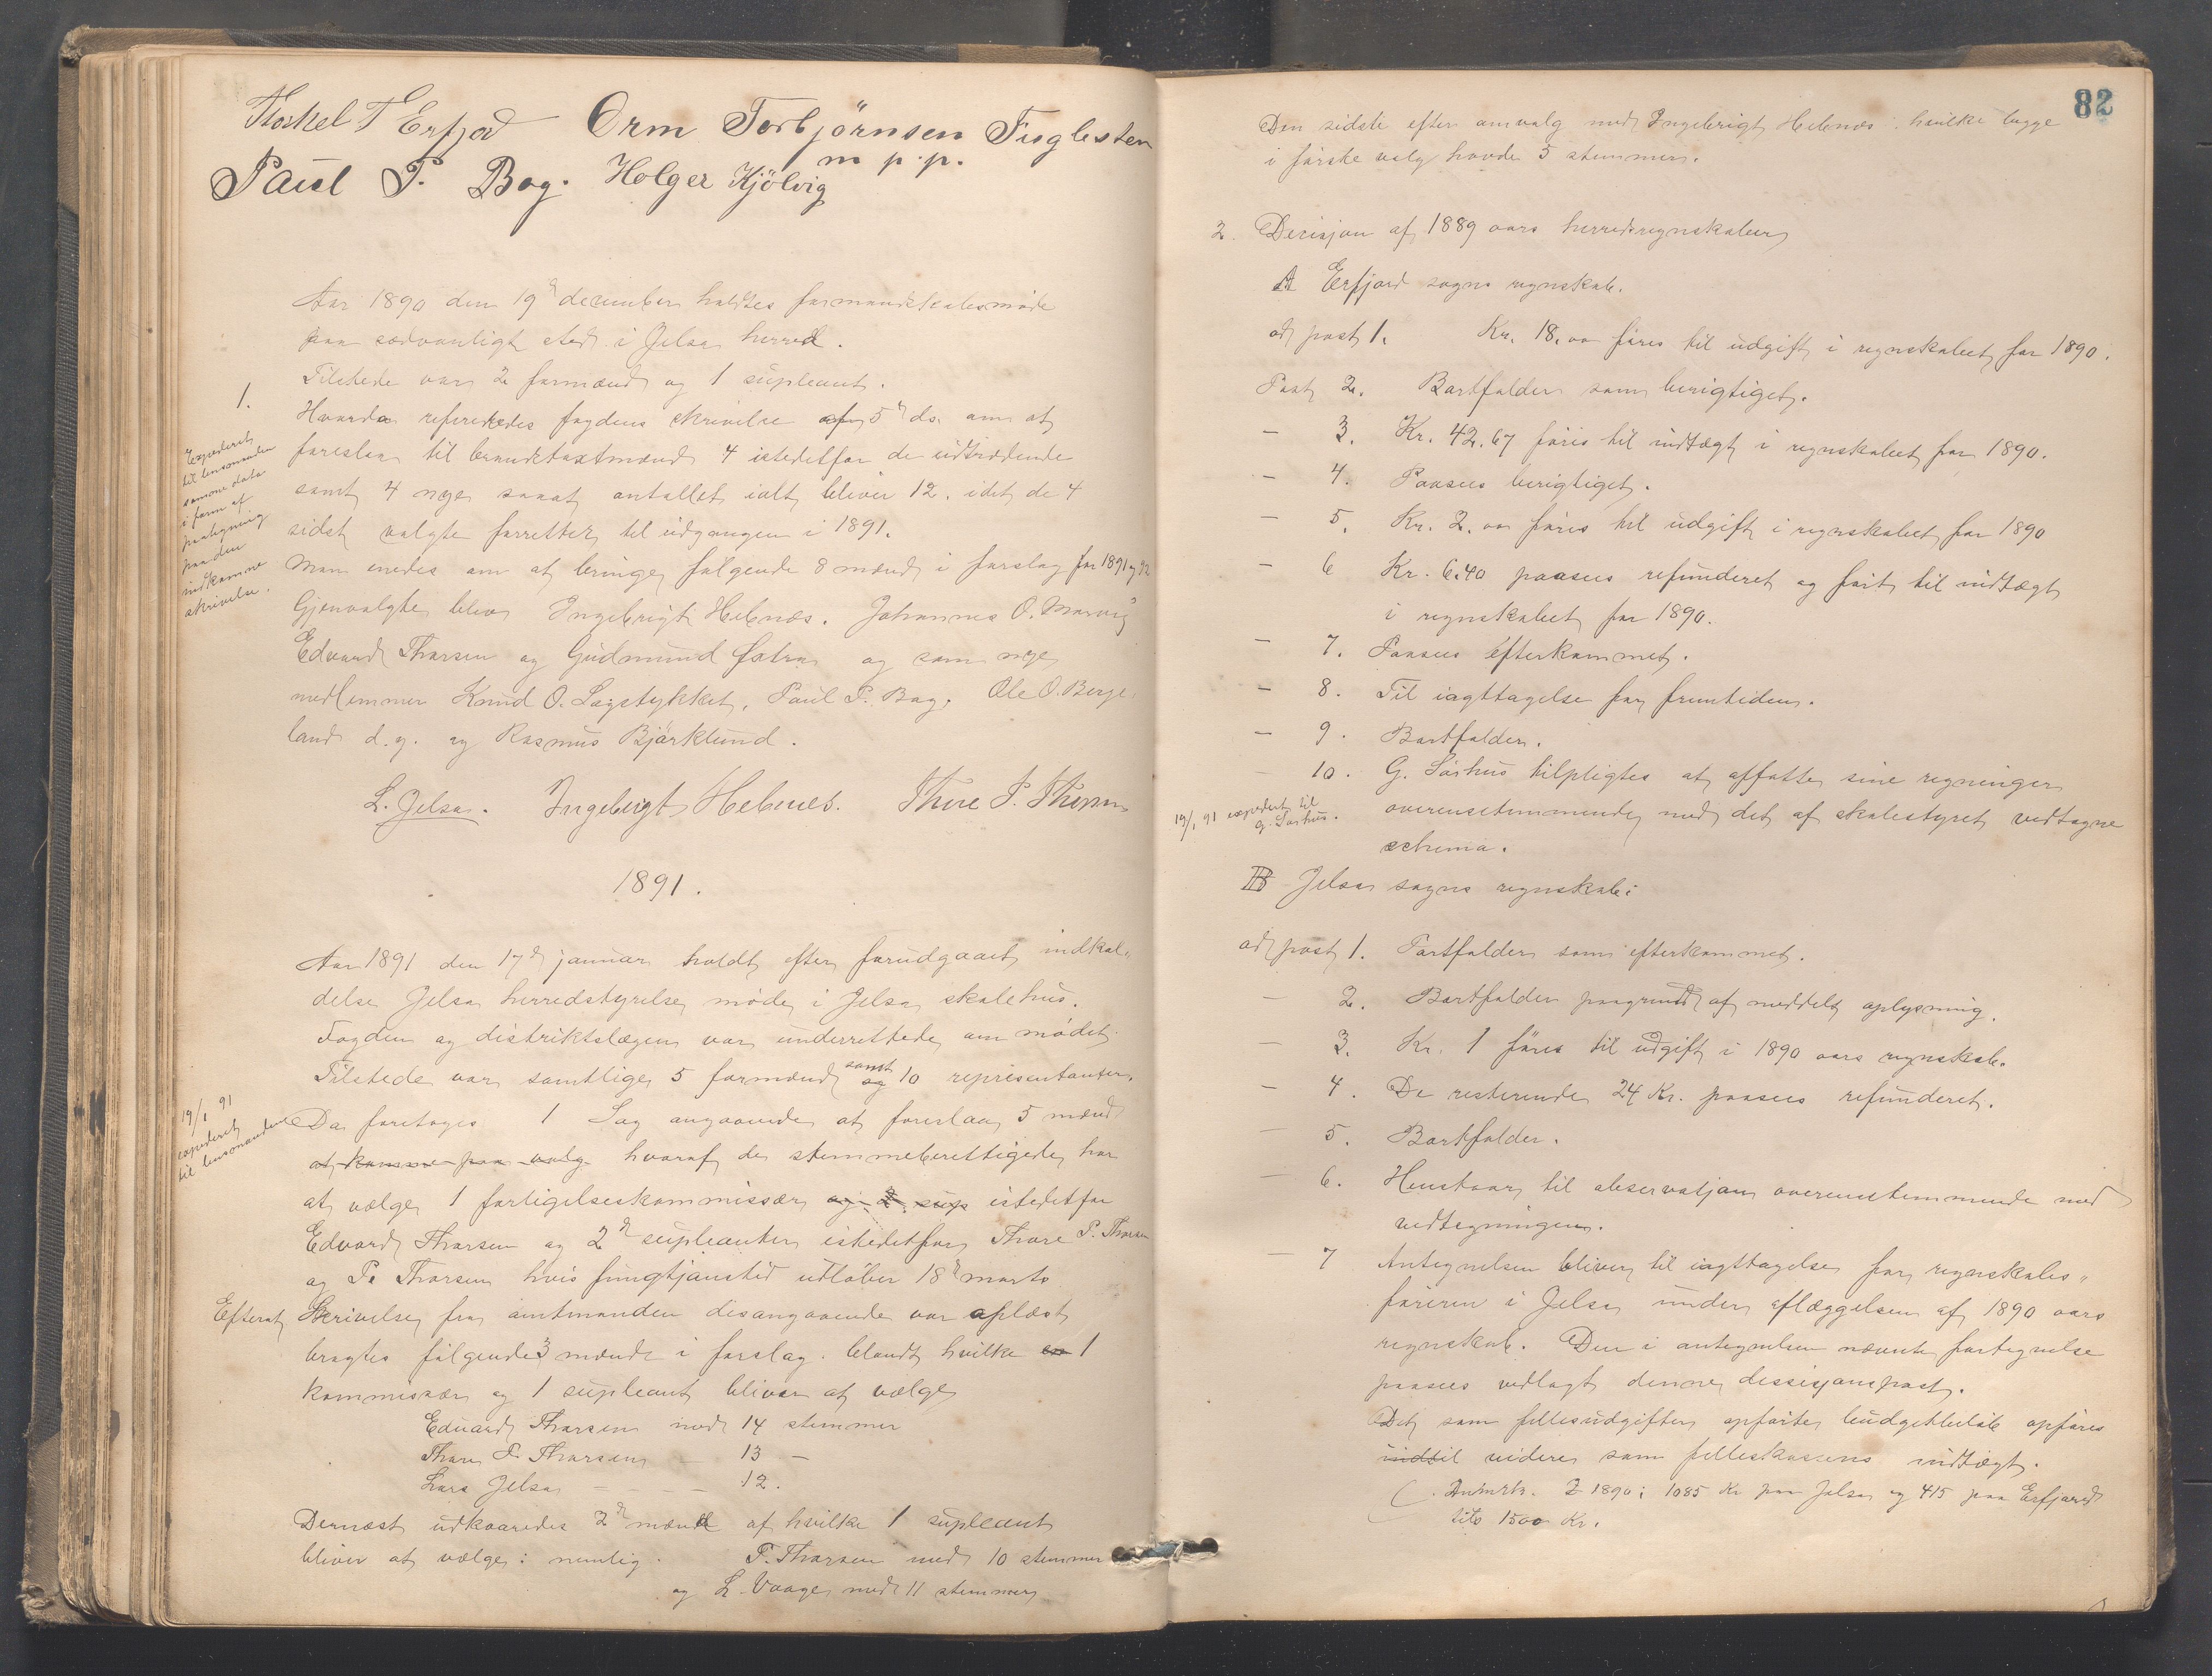 Thorkel T Erfjord Orm Torbjörnsen Fuglesten
m p.p.
Paul P. Bog. Holger Kjölvig
Aar 1890 den 19de december holdtes formandskabsmøde
paa sædvanligt sted i Jelsa herred.
Tilstede var 2 formænd og 1 supleant.
1.
Hvorda refereredes fogdens skrivelse af 5te ds. om at
foreslaa til brandtaxtmænd 4 istedetfor de udtrædende
samt 4 nye saaat antallet ialt bliver 12. idet de 4
sidst valgte forretter til udgangen i 1891.
Expederet
til lensmanden
samme dato
i form af
paategning
paa den
indkomne
skrivelse.
Man enedes om at bringe følgende 8 mænd i forslag for 1891 og 92
Gjenvalgte blev Ingebrigt Hebnes. Johannes O. Marvig
Edvard Thorsen og Gudmund Fatra og som nye
medlemmer Knud O. Løgstykket, Paul P. Bog. Ole O. Berge-
land d.y. og Rasmus Bjørklund.
L. Jelsa. Ingebrigt Hebnes. Thore P. Thorsen
1891.
Aar 1891 den 17de januar holdt efter forudgaaet indkal-
delse Jelsa herredstyrelse møde i Jelsa skolehus.
Fogden og distriktslægen var underrettede om mødet.
Tilstede var samtlige 5 formænd samt og 10 repræsentanter.
19/1 91
expederet
til lensmanden
Da foretoges 1 Sag angaaende at foreslaa 5 mænd
at komme paa valg hvoraf de stemmeberettigede har
at vælge 1 forligelseskommissær og 2 sup istedetfor
Edvard Thorsen og 2de supleanter istedetfor Thore P. Thorsen
og P. Thorsen hvis fungtjonstid udløber 18de marts
Efterat Skrivelse fra amtmanden desangaaende var oplæst
bragtes følgende 3 mænd i forslag blandt hvilke en 1
kommissær og 1 supleant bliver at vælge
Edvard Thorsen med 14 stemmer
Thore P. Thorsen - 13 -
Lars Jelsa - - - - 12.
Dernæst udkaaredes 2de mænd af hvilke 1 supleant
bliver at vælge: nemlig. P. Thorsen med 10 stemmer
og L. Vaage med 11 stemmer
82
Den sidste efter omvalg med Ingebrigt Hebnes. hvilke begge
i første valg havde 5 stemmer.
2. Decisjon af 1889 aars herredsregnskaber
A Erfjord sogns regnskab.
ad post 1. Kr. 18.00 føres til udgift i regnskabet for 1890.
Post 2. Bortfalder som berigtiget.
- 3. Kr. 42.67 føres til indtægt i regnskabet for 1890.
- 4. Paasees berigtiget.
- 5. Kr. 2.00 føres til udgift i regnskabet for 1890
- 6 Kr. 6.40 paasees refunderet og ført til indtægt
i regnskabet for 1890.
- 7. Paasees efterkommet.
- 8. Til iagttagelse for fremtiden.
- 9. Bortfalder.
- 10. G. Sørhus tilpligtes at affatte sine regninger
19/1 91 expedert til
G. Sørhus.
overensstemmende med det af skolestyret vedtagne
schema.
B Jelsa sogns regnskab:
ad post 1. Bortfalder som efterkommet.
- 2. Bortfalder paagrund af meddelt oplysning.
- 3. Kr. 1 føres til udgift i 1890 aars regnskab.
- 4. De resterende 24 Kr. paasees refunderet.
- 5. Bortfalder.
- 6. Henstaar til observatjon overensstemmende med
vedtegningen.
- 7 Antegnelsen bliver til iagttagelse for regnskabs-
føreren i Jelsa under aflæggelsen af 1890 aars
regnskab. Den i antegnelsen nævnte fortegnelse
paasees vedlagt denne dessisjonspost.
Det som fellesudgifter opførte budgetbeløb opføres
indtil videre som felleskassens indtægt.
(. Anmrk. I 1890: 1085 Kr paa Jelsa og 415 paa Erfjord
tils 1500 Kr.